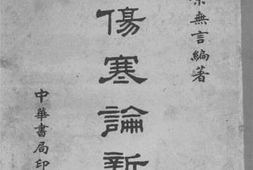 余無言編著
傷寒論新
中華書局印